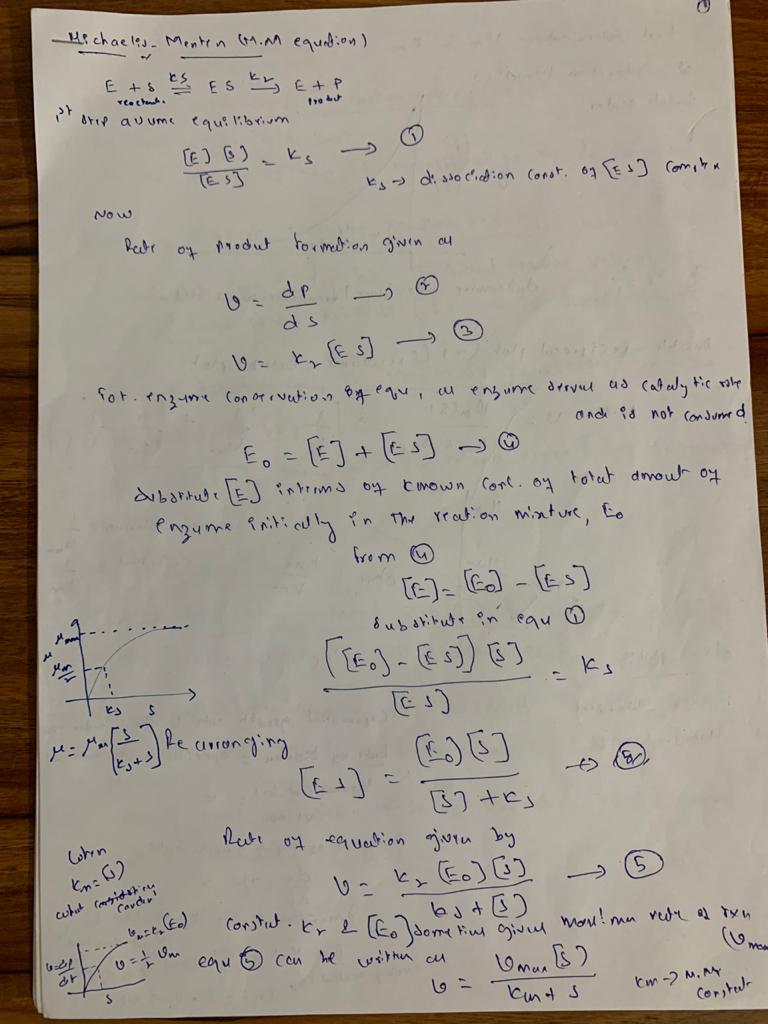 ①
Michaelis - Menten (M.M equation)
E + S ⇌ ES → E + P
ks kr
reactant. product
1st step assume equilibrium
[E] [S] / [ES] = Ks → ①
Ks → dissociation const. of [ES] complex
Now
Rate of product formation given as
v = dp / ds → ②
v = kr [ES] → ③
for enzyme conservation equ, as enzyme serves as catalytic role
and is not consumed
E₀ = [E] + [ES] → ④
substitute [E] interms of known conc. of total amout of
enzyme initially in the reation mixture, E₀
from ④
[E] = [E₀] - [ES]
substitute in equ ①
([E₀] - [ES]) [S] / [ES] = Ks
μ
μm
μm/2
Ks S
μ = μm [S / Ks + S]
Rearranging
[ES] = [E₀] [S] / [S] + Ks
Rate of equation given by
v = kr [E₀] [S] / ks + [S] → ⑤
When
Km = [S]
what
vm = kr [E₀]
v = 1/2 vm
v = dp / dt
S
Constant. Kr & [E₀] sometime gives maximum rate of rxn
(vmax
equ ⑤ can be written as
v = vmax [S] / Km + S
Km → M.M
constant